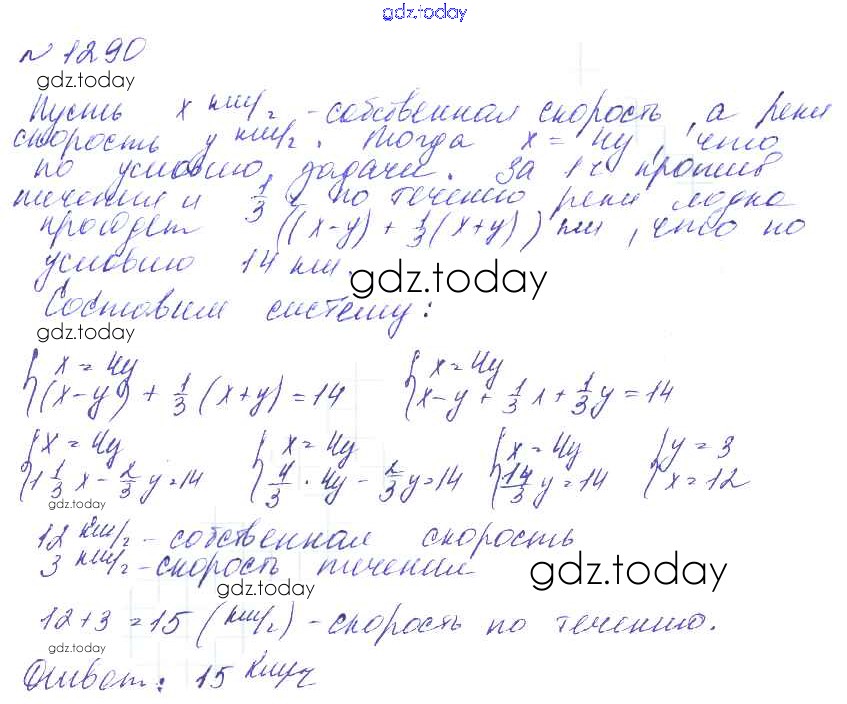 gdz.today
№ 1290
gdz.today
Пусть x км/ч - собственная скорость, а реки
скорость y км/ч. Тогда x = 4y, что
по условию задачи. За 1 ч против
течения и 1/3 ч по течению реки лодка
пройдет ((x-y) + 1/3(x+y)) км, что по
условию 14 км.
gdz.today
Составим систему:
gdz.today
{x = 4y {x = 4y
{(x-y) + 1/3 (x+y) = 14 {x-y + 1/3 x + 1/3 y = 14
{x = 4y {x = 4y {x = 4y {y = 3
{1 1/3 x - 2/3 y = 14 {4/3 · 4y - 2/3 y = 14 {14/3 y = 14 {x = 12
gdz.today
12 км/ч - собственная скорость
3 км/ч - скорость течения
gdz.today
gdz.today
12+3 = 15 (км/ч) - скорость по течению.
gdz.today
Ответ: 15 км/ч
gdz.today